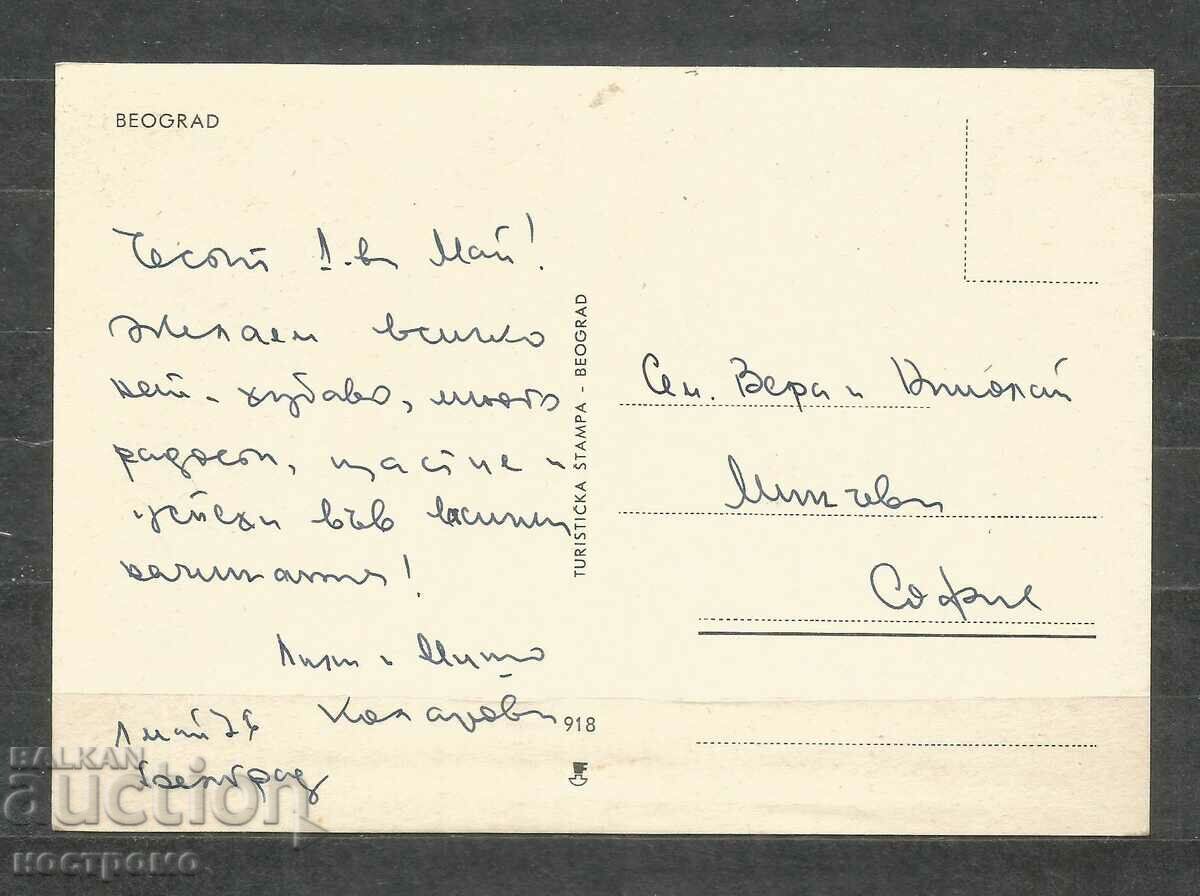 BEOGRAD
Честит 1-ви Май!
Желаем всичко
най-хубаво, много
радост, щастие и
успехи във всички
начинания!
и Мито
Коларови
1 май
Белград
TURISTIČKA ŠTAMPA - BEOGRAD
918
Сем. Вера и Николай
Минчеви
София
BALKAN
auction
костромо